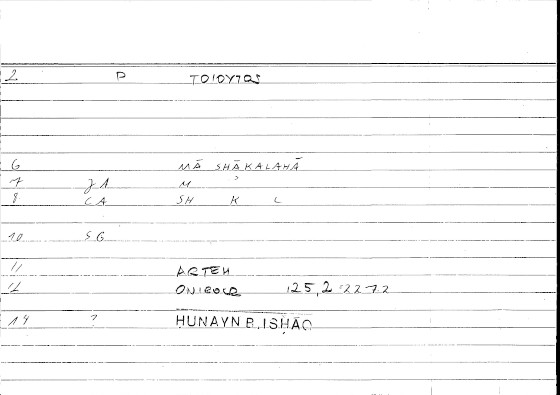 2 P TOIOYTOS
6 MĀ SHĀKALAHĀ
7 JA M ʾ
8 CA SH K L
10 SG
11 ARTEM
12 ONIROCR 125,2
14 ? HUNAYN B. ISḤĀQ